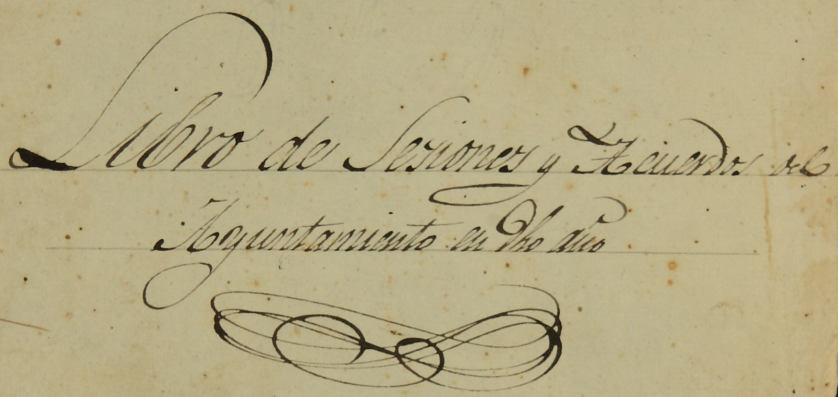 Libro de Sesiones y Acuerdos del
Ayuntamiento en dho año